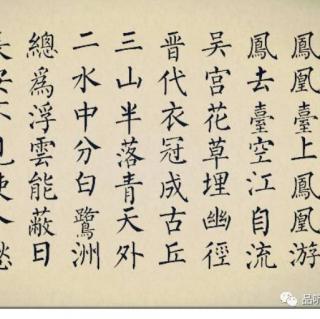 鳳凰臺上鳳凰游
鳳去臺空江自流
吳宮花草埋幽徑
晉代衣冠成古丘
三山半落青天外
二水中分白鷺洲
總爲浮雲能蔽日
長安不見使人愁